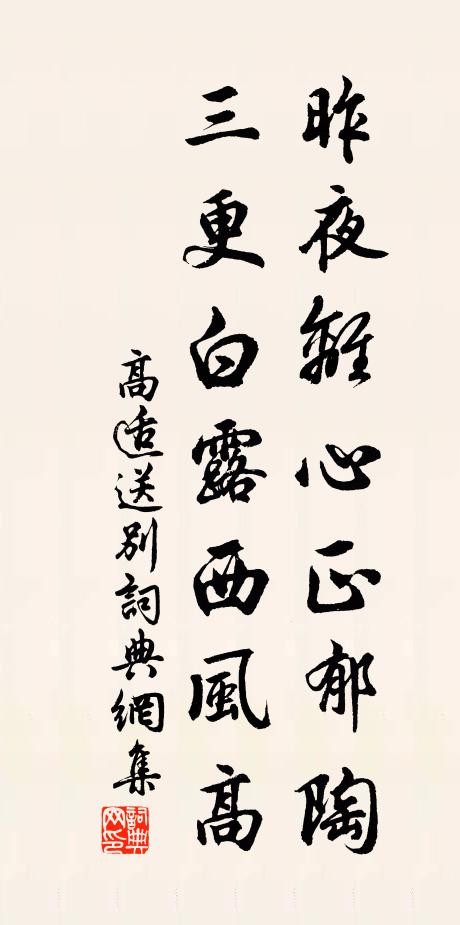 昨夜離心正郁陶
三更白露西風高
高适送別詞典網集
詞典網印